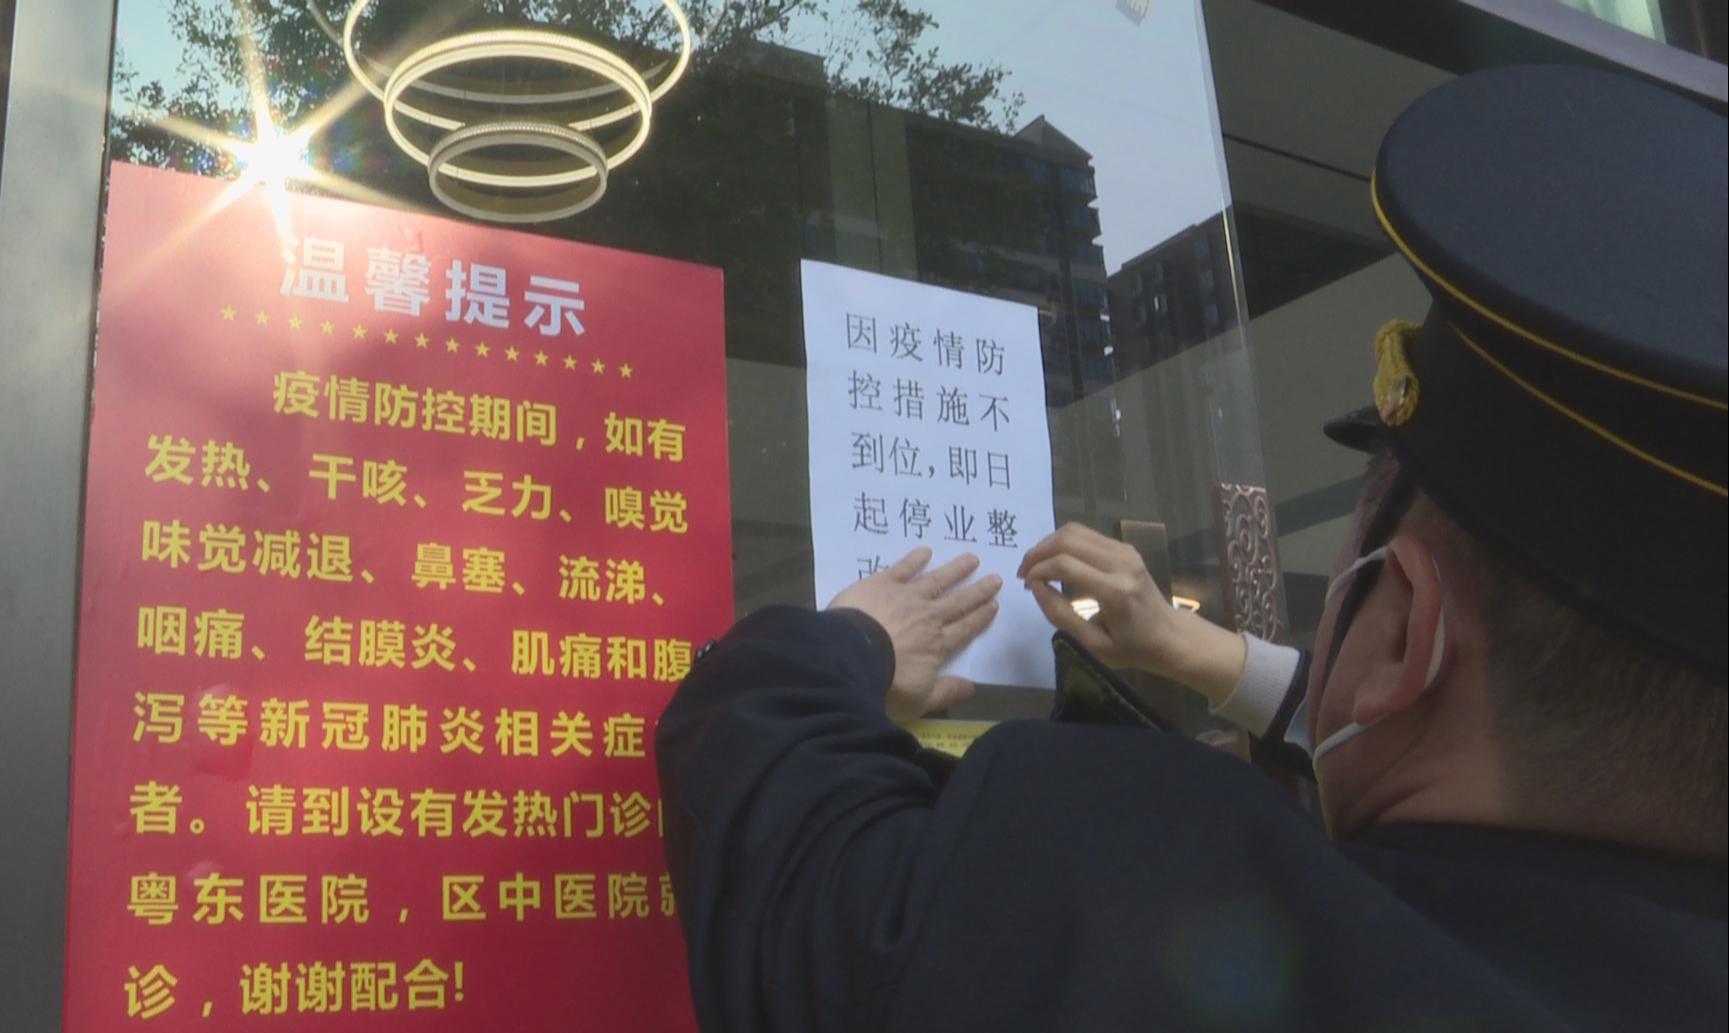 温馨提示
疫情防控期间，如有
发热、干咳、乏力、嗅觉
味觉减退、鼻塞、流涕、
咽痛、结膜炎、肌痛和腹
泻等新冠肺炎相关症
者。请到设有发热门诊
粤东医院，区中医院
诊，谢谢配合!
因疫情防
控措施不
到位,即日
起停业整